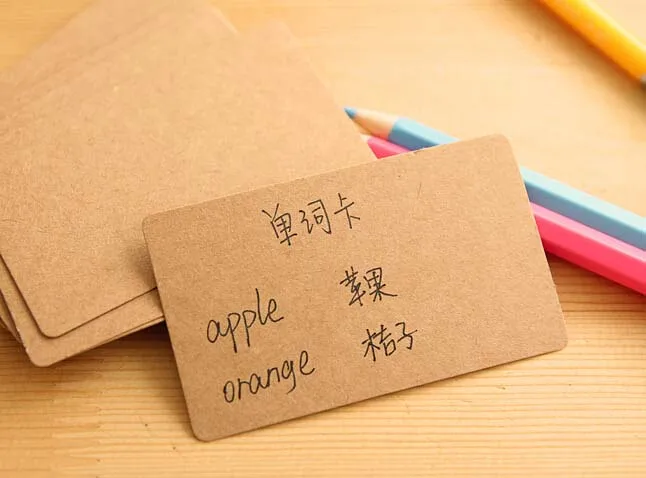 单词卡
apple 苹果
orange 桔子